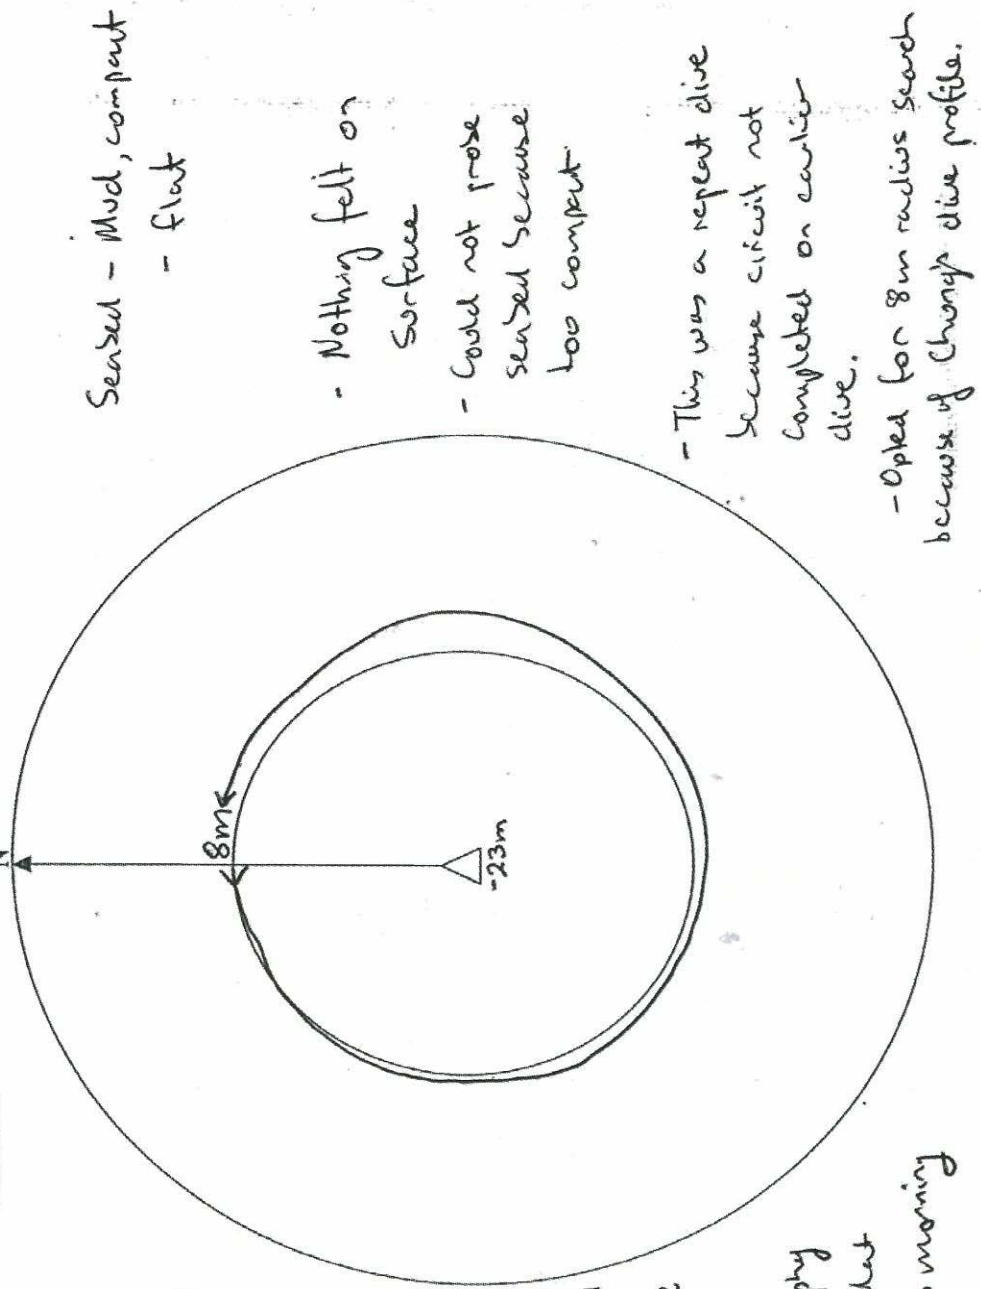 Seabed - Mud, compact
- flat
- Nothing felt on
surface
- Could not probe
seabed because
too compact
- This was a repeat dive
because circuit not
completed on earlier
dive.
- Opted for 8m radius search
because of dive profile.
8m
-23m
morning